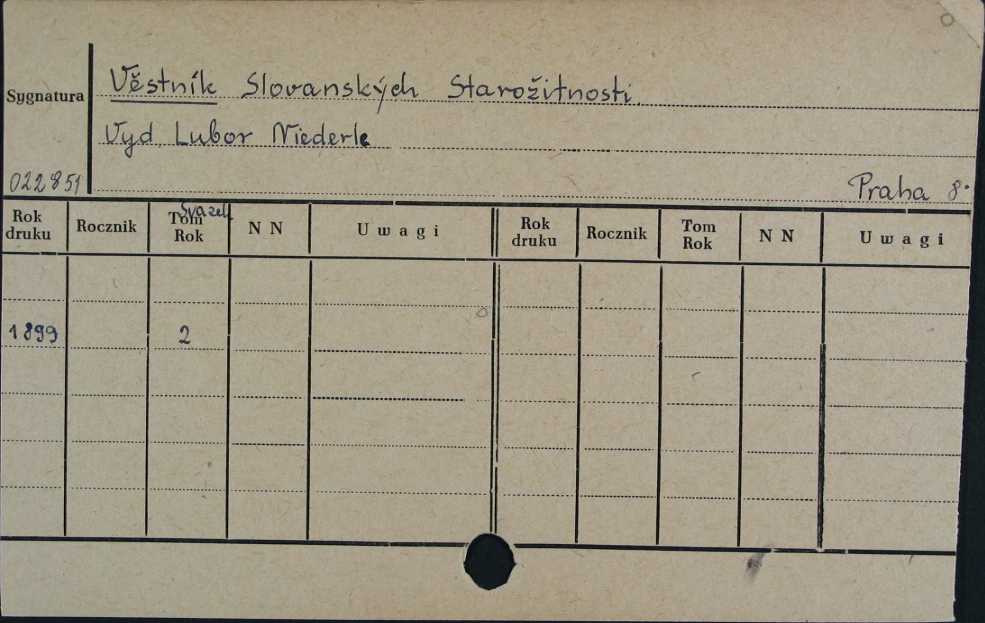 Sygnatura
Věstník Slovanských Starožitnosti.
Vyd. Lubor Niederle
022851
Praha 8°
Rok druku Rocznik Tom Svazek Rok N N Uwagi Rok druku Rocznik Tom Rok N N Uwagi
1899 2